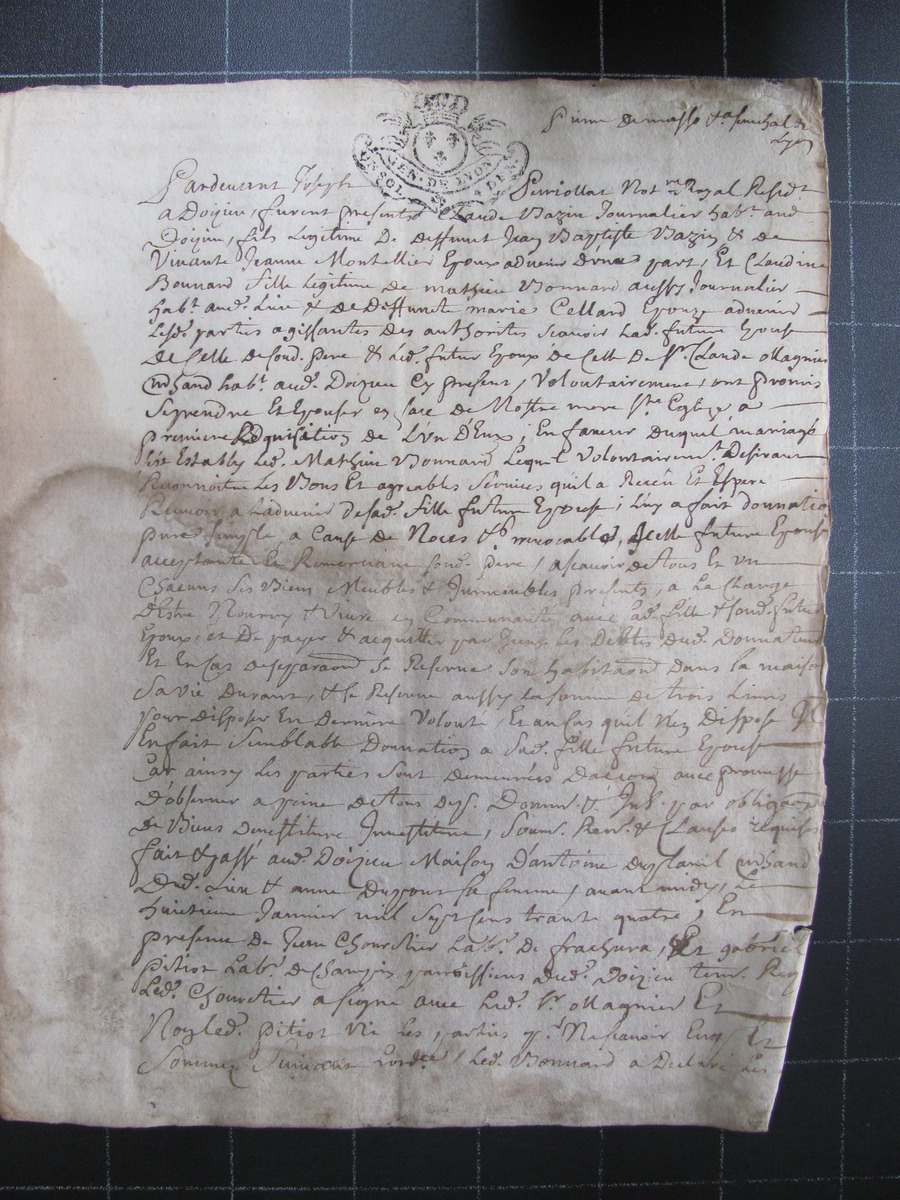 GEN. DE LYON
UN SOL
DEN.
Lyon
Pardevant Joseph Perriollat Not.re Royal Resid.t
a Doizieu, furent presents Claude Bazin Journalier hab.t aud.
Doizieu, fils Legitime De deffunct Jean Baptiste Bazin & de
Vivante Jeanne Montellier Epoux advenir D'une part, Et Claudine
Bonnard fille Legitime de Mathieu Bonnard aussy Journalier
hab.t aud. Lieu & de Deffuncte marie Cellard Epouze advenir
Lesd. parties agissantes des authorites scavoir Lad. future Epouse
de Celle de sond. pere & Led. futur Epoux de Celle de S.r Claude Ollagnier
M.chand hab.t aud. Doizieu Cy present, Volontairement, ont promis
Se prendre Et Epouser en face de Nostre mere S.te Eglize a
premiere Requisition de L'un D'Eux; En faveur duquel mariage
s'est Estably Led. Mathieu Bonnard Lequel Volontairem.t Desirant
Reconnoitre Les Bons Et agreables services qu'il a Receu Et Espere
Recevoir a L'advenir de sad. fille future Epouse; Luy a fait donnatio
pure simple, a Cause de Noces & irrevocable, a Celle future Epouse
acceptante Et Remerciant sond. pere, a scavoir de tous Et un
Chacuns ses Biens Meubles & Immeubles presents, a La Charge
D'Estre Nourry & Vivre en Communauté avec sad. fille & sond. futur
Epoux, et De payer & acquitter par Iceux Les Debtes dud. Donnateur
Et En Cas de separaon Se Reserve Son habitaon Dans la maison
Sa vie Durant, & se Reserve aussy la somme de trois Livres
pour Disposer En Derniere Volonté, Et au Cas qu'il N'en Dispose Il
En fait Semblable Donnation a Sad. fille future Epouse
Car ainsy Les parties Sont demeurées D'accord avec promesse
D'observer a peine de tous desp. Domm. & Int. par obligaon
de Biens Constitues Investiture, Soum. Ren. & Clauses requises
fait & passé aud. Doizieu Maison D'antoine M.chand
Dud. Lieu & anne Dupont sa femme, avant midy, Le
huictieme Janvier mil Sept Cens trante quatre, En
presence de Jean Chouretier Lab.r de frachura, Et gabriel
pitiot Lab.r de Changin parroissiens dud. Doizieu tem.
Led. Chouretier a signé avec Led. S.r Ollagnier Et
Non Led. pitiot Ni Les parties p.r Ne Scavoir Enq. Et
Sommez Suivant Lord.ce, Led. Bonnard a Declaré Les